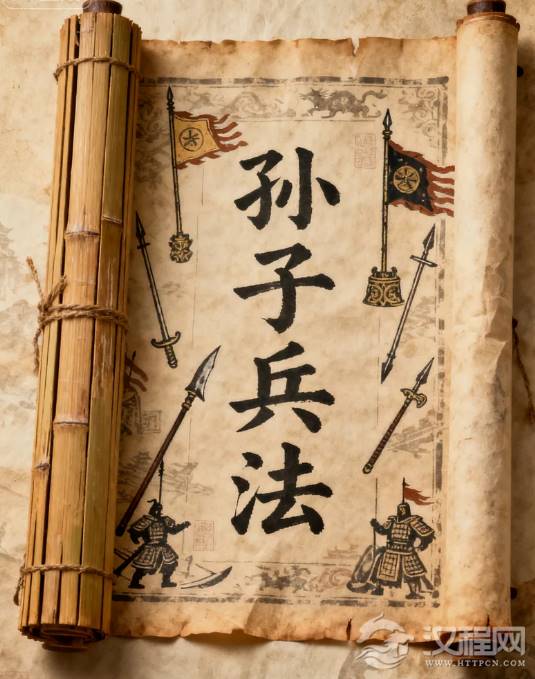 孙子兵法
汉程网
WWW.HTTPCN.COM